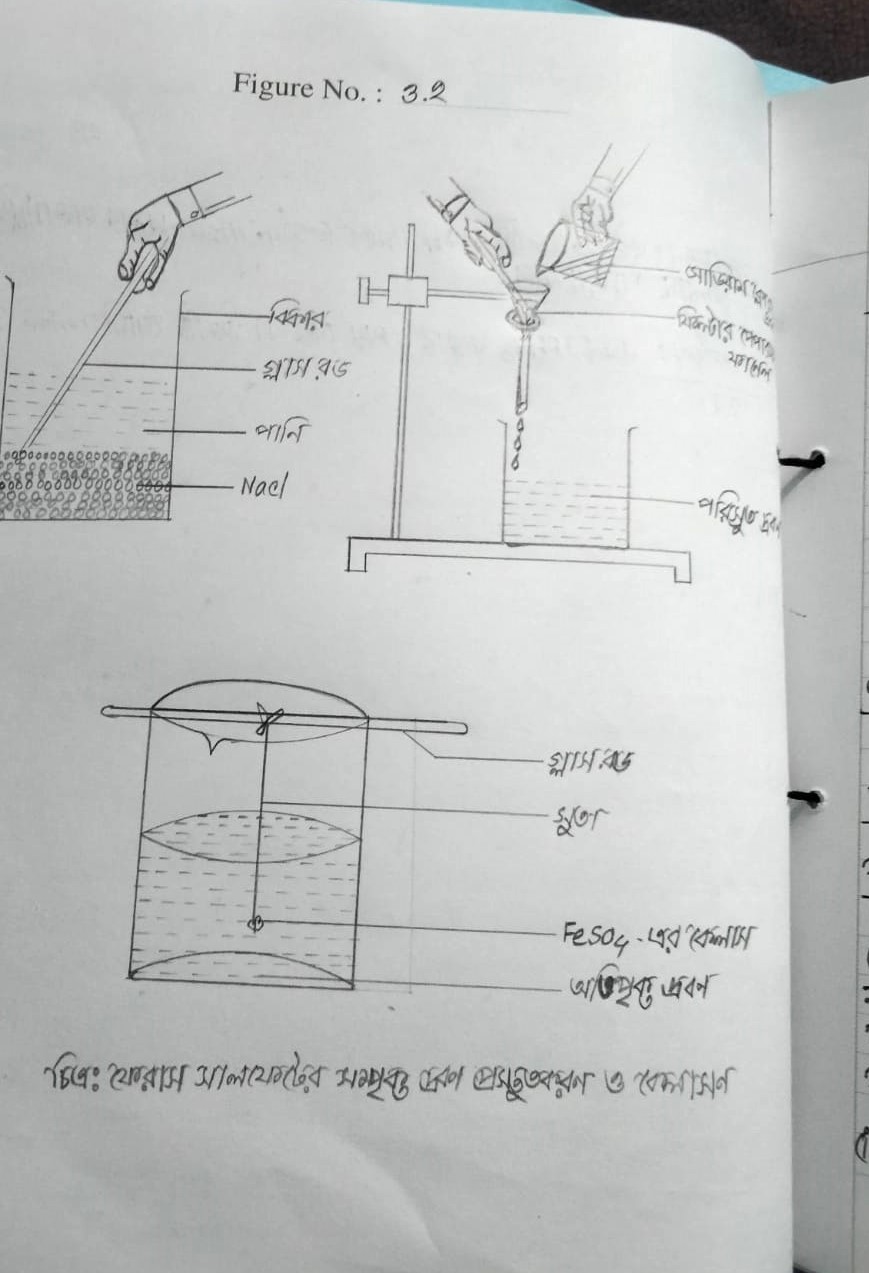 Figure No. : 3.2
বিকার
গ্লাস রড
পানি
Nacl
ফিল্টার পেপার
ফানেল
পরিস্রুত দ্রবণ
গ্লাস রড
সুতা
FeSO4-এর কেলাস
অতিপৃক্ত দ্রবণ
চিত্র: ফেরাস সালফেটের সম্পৃক্ত দ্রবণ প্রস্তুতকরণ ও কেলাসন